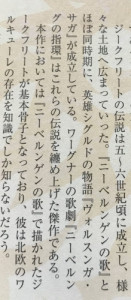 ジークフリートの伝説は五、六世紀頃に成立し、様
々な土地へ広まっていった。『ニーベルンゲンの歌』と
ほぼ同時期に、英雄シグルドの物語『ヴォルスンガ・
サガ』が成立している。ワーグナーの歌劇『ニーベルン
グの指環』はこれらの伝説を纏め上げた傑作である。
本作においては『ニーベルンゲンの歌』で描かれたジ
ークフリートが基本骨子となっており、彼は北欧のワ
ルキューレの存在を知識でしか知らないだろう。